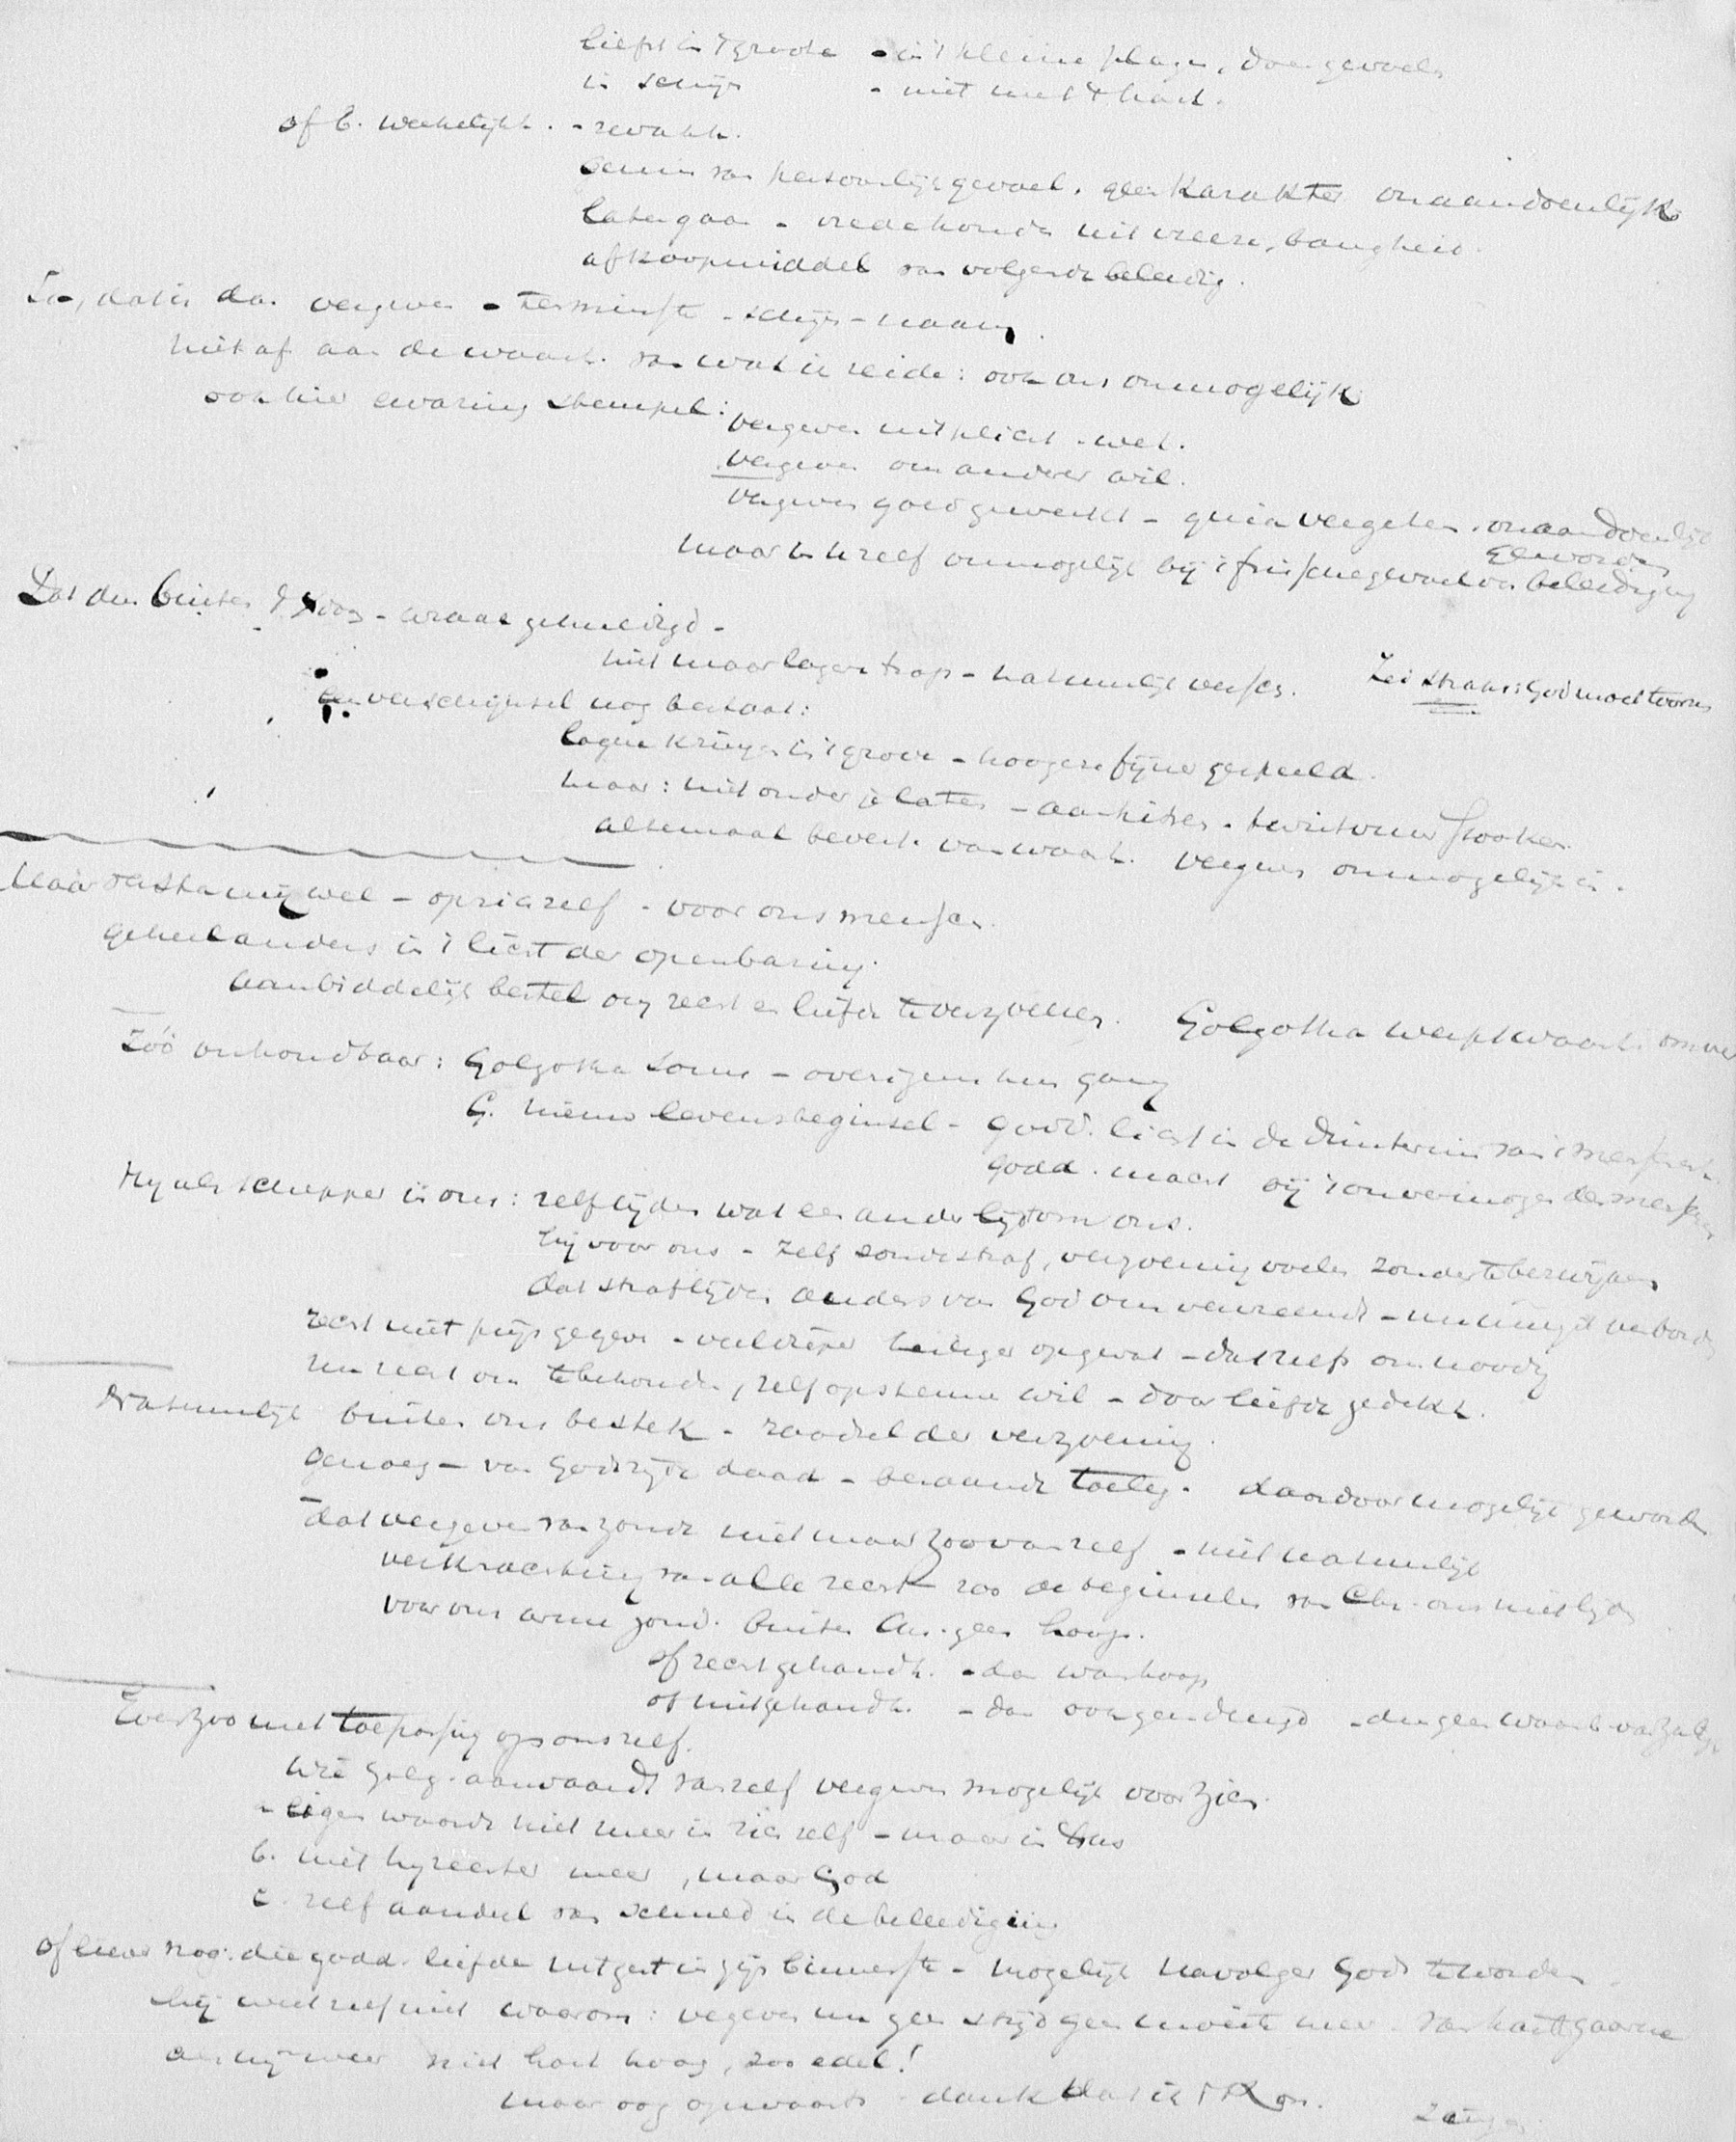 liefst in 't groote - in 't kleine plagen, doen gevoelen
in schijn - niet met 't hart.
of b. weekelijk. - zwakh.
gemis van persoonlijk gevoel. geen karakter onaandoenlijk
laten gaan - vredehouden uit vreeze, bangheid.
afkoopmiddel van volgende beleedig.
Zie, dat is dan vergeven - tenminste - schijn - naam.
niet af aan de waarh. van wat ik zeide: ook ons onmogelijk
ook hier ervaring stempel:
vergeven uit plicht - wet.
vergeven om anderer wil.
vergeven goed gewerkt - vergeten. onaandoenlijk
geworden
maar in zichzelf onmogelijk bij 't frissche gevoel van beleediging
Dat dan buiten - wraak gehuldigd -
niet maar lagere trap - natuurlijk versch.
Zei straks: God moet toornen
een verschijnsel nog bestaat:
lagere kringen in 't grove - hoogere fijner gespeeld.
maar: niet onder je laten - aanhitsen - twistvuur stooken.
altemaal bevest. van waarh. vergeven onmogelijk is.
Maar versta mij wel - op zichzelf - voor ons menschen.
geheel anders in 't licht der openbaring.
aanbiddelijk bestel om recht en liefde te verzoenen. Golgotha werpt waarh. omver
Zóó onhoudbaar: Golgotha som - overigens hun gang
G. nieuw levensbeginsel - godd. licht in de duisternis van 't menschenh.
godd. macht bij 't onvermogen der menschen
Hij als schepper in ons: zelf lijden wat een ander lijdt om ons.
hij voor ons - zelf zondestraf, verzoening voelen zonder te bezwijken
dat straflijden anders van God ons vervreemdt - nu innigst verbond
recht niet prijsgegeven - veel dieper heiliger opgevat - dat zelfs ons noodig
nu recht om te behouden, zelf op stemme wil - door liefde gedekt.
Natuurlijk buiten ons bestek - raadsel der verzoening.
genoeg - van Gods zijde daad - beraamde toeleg. daardoor mogelijk geworden
dat vergeven van zonde niet maar zoo van zelf - niet natuurlijk
verkrachting van alle recht - zoo de beginselen van Chr. ons niet lijden
voor ons arme zond. buiten Chr. geen hoop.
of recht gehandh. - dan wanhoop
of niet gehandh. - dan ook geen deugd - dan geen waarb. van zalig
Evenzoo met toepassing op ons zelf.
wie Golg. aanvaardt van zelf vergeven mogelijk voor zich.
a eigen waarde niet meer in zich zelf - maar in Chrs
b. niet hij rechter meer, maar God
c. zelf aandeel van schuld in de beleediging
of liever nog: die godd. liefde uitgest in zijn binnenste - mogelijk navolger Gods te worden.
hij weet zelf niet waarom: vergeven nu geen strijd geen moeite meer. van harte gaarne
als hij weer niet hart hoog, zoo edel!
maar oog opwaarts - dank dat ik 't kan.
Zangen.